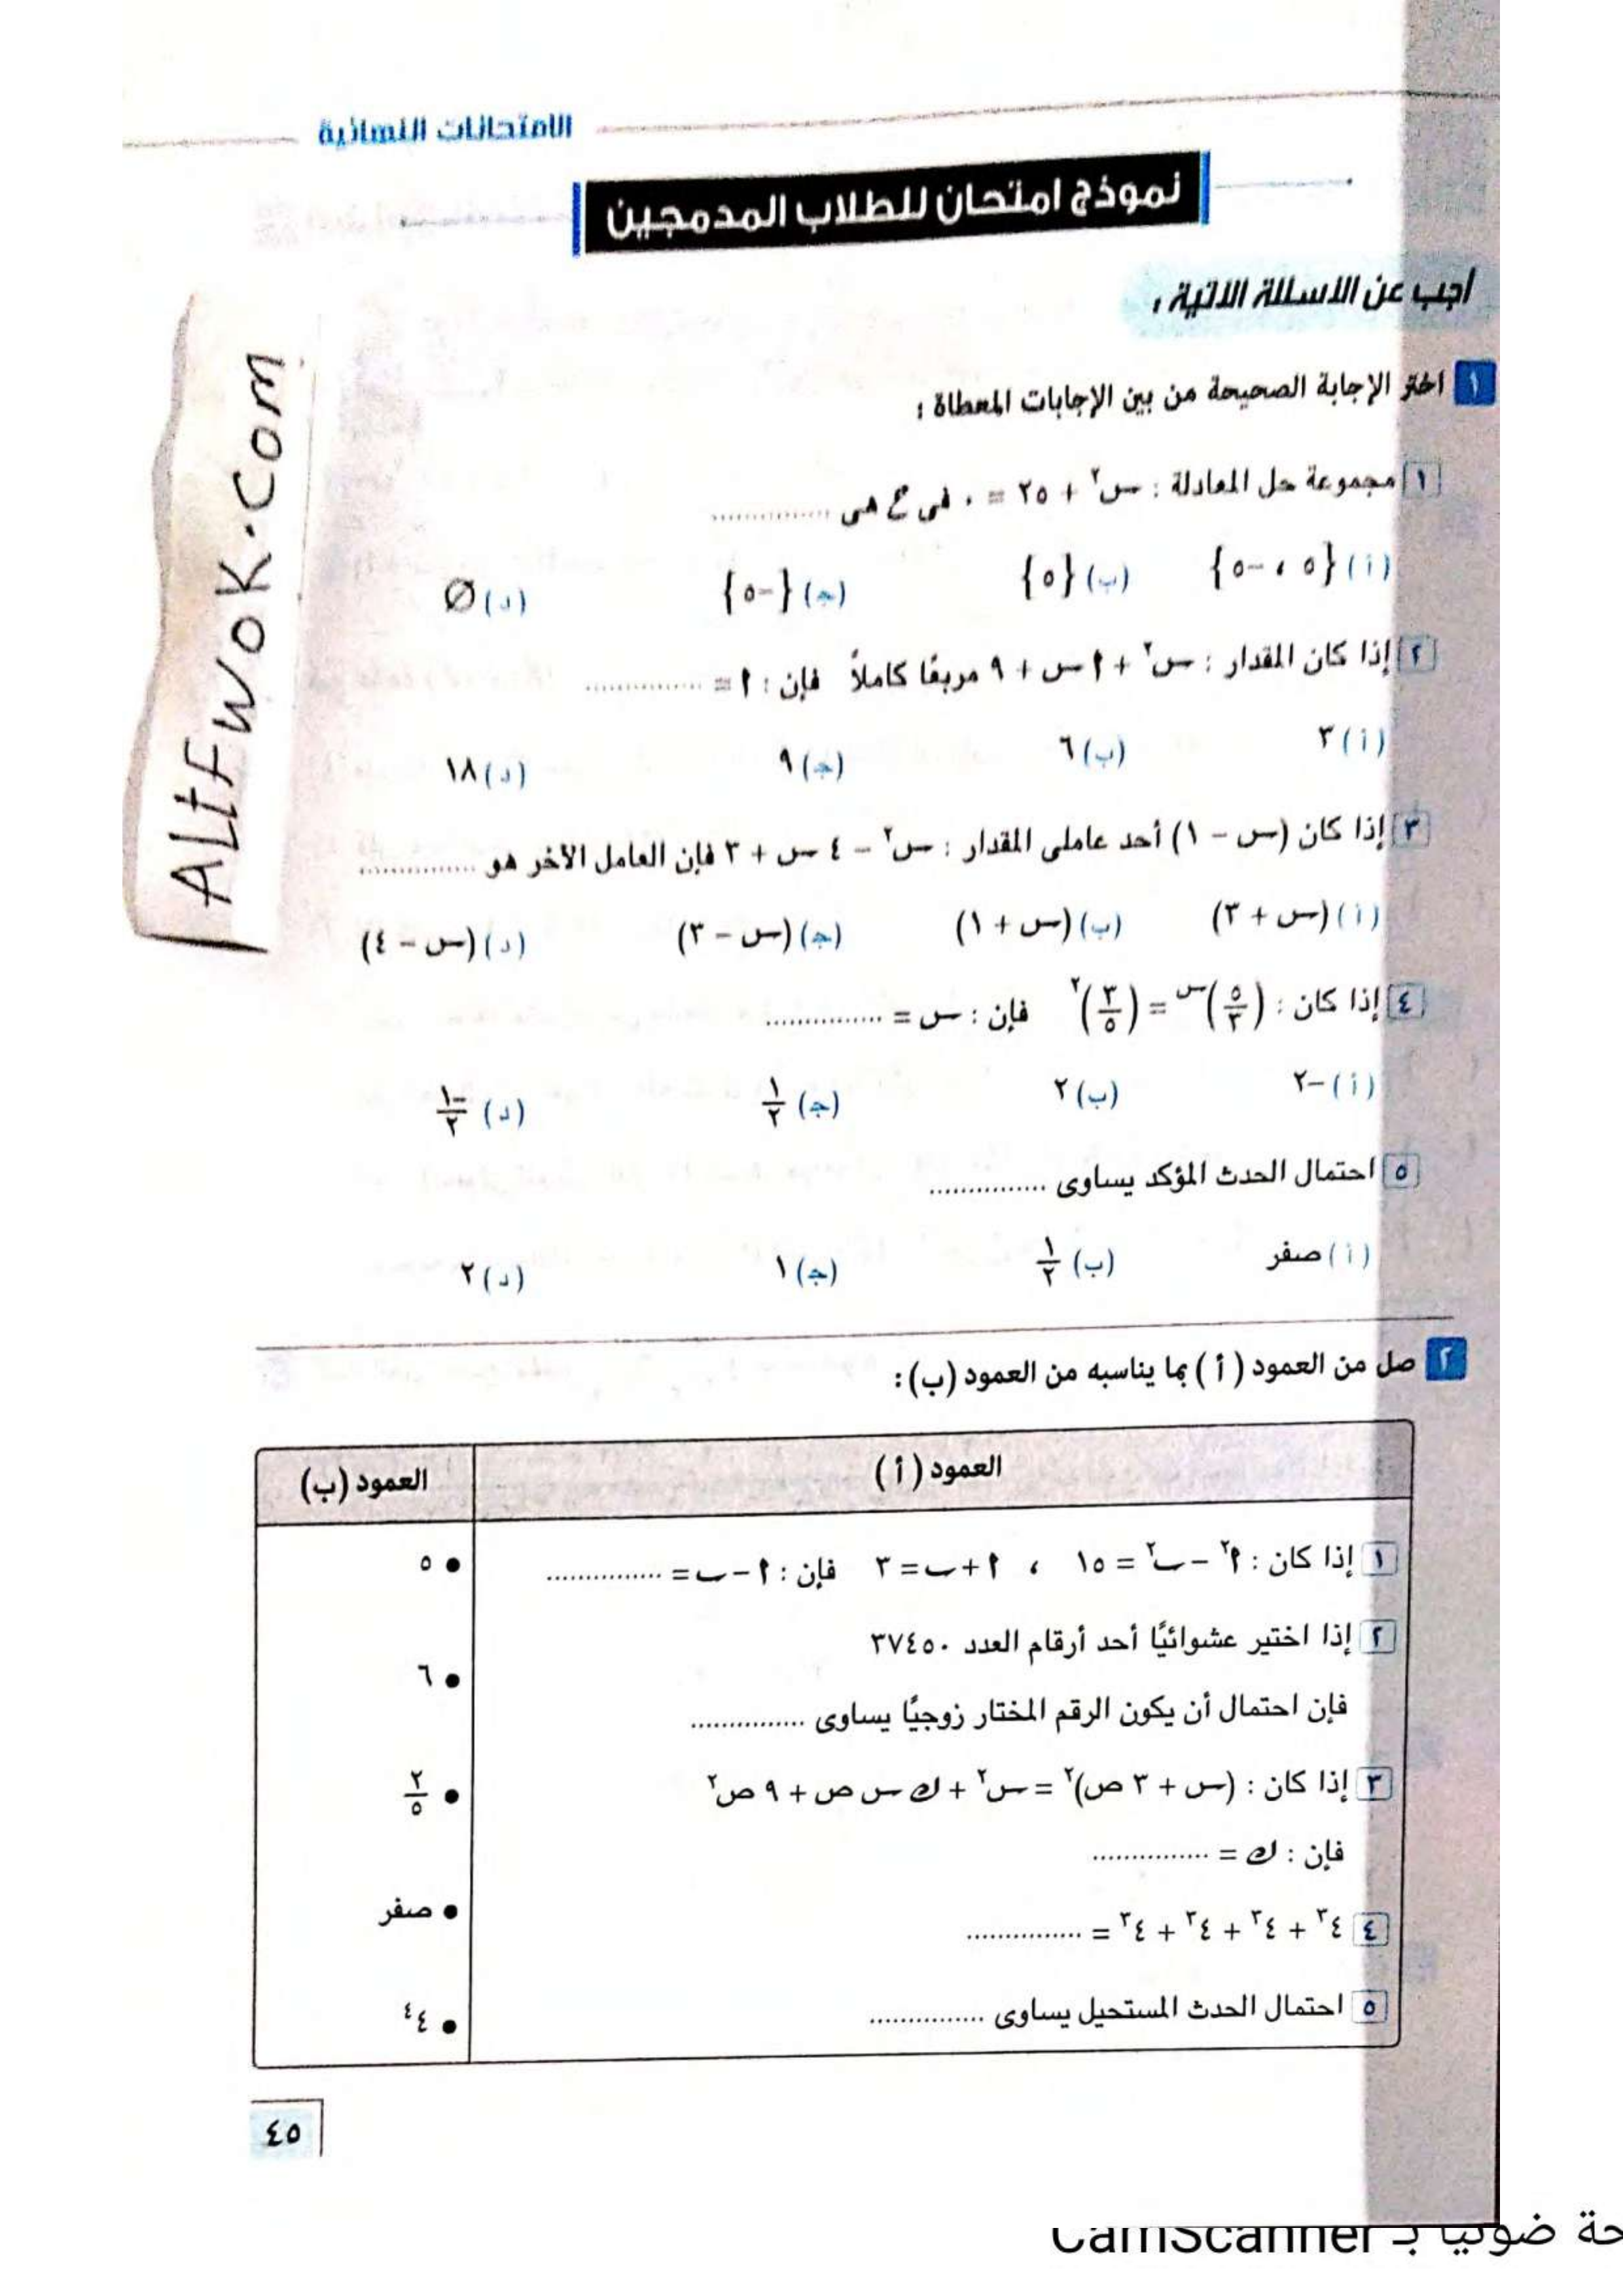 الامتحانات النهائية
نموذج امتحان للطلاب المدمجين
أجب عن الأسئلة الآتية :
١ اختر الإجابة الصحيحة من بين الإجابات المعطاة :
١ مجموعة حل المعادلة : س٢ + ٢٥ = ٠ فى ع هى ...............
(أ) {٥ ، -٥} (ب) {٥} (ج) {-٥} (د) ∅
٢ إذا كان المقدار : س٢ + ا س + ٩ مربعًا كاملاً فإن : ا = ...............
(أ) ٣ (ب) ٦ (ج) ٩ (د) ١٨
٣ إذا كان (س - ١) أحد عاملى المقدار : س٢ - ٤ س + ٣ فإن العامل الآخر هو ...............
(أ) (س + ٣) (ب) (س + ١) (ج) (س - ٣) (د) (س - ٤)
٤ إذا كان : (٥/٣)س = (٣/٥)٢ فإن : س = ...............
(أ) -٢ (ب) ٢ (ج) ١/٢ (د) -١/٢
٥ احتمال الحدث المؤكد يساوى ...............
(أ) صفر (ب) ١/٢ (ج) ١ (د) ٢
٢ صل من العمود (أ) بما يناسبه من العمود (ب) :
العمود (أ) العمود (ب)
١ إذا كان : ا٢ - ب٢ = ١٥ ، ا + ب = ٣ فإن : ا - ب = ............... • ٥
٢ إذا اختير عشوائيًا أحد أرقام العدد ٣٧٤٥٠
فإن احتمال أن يكون الرقم المختار زوجيًا يساوى ............... • ٦
٣ إذا كان : (س + ٣ ص)٢ = س٢ + ك س ص + ٩ ص٢ • ٢/٥
فإن : ك = ...............
٤ ٤٣ + ٤٣ + ٤٣ + ٤٣ = ............... • صفر
٥ احتمال الحدث المستحيل يساوى ............... • ٤٤
٤٥
ALtFwoK.Com
حة ضوئيا بـ CamScanner